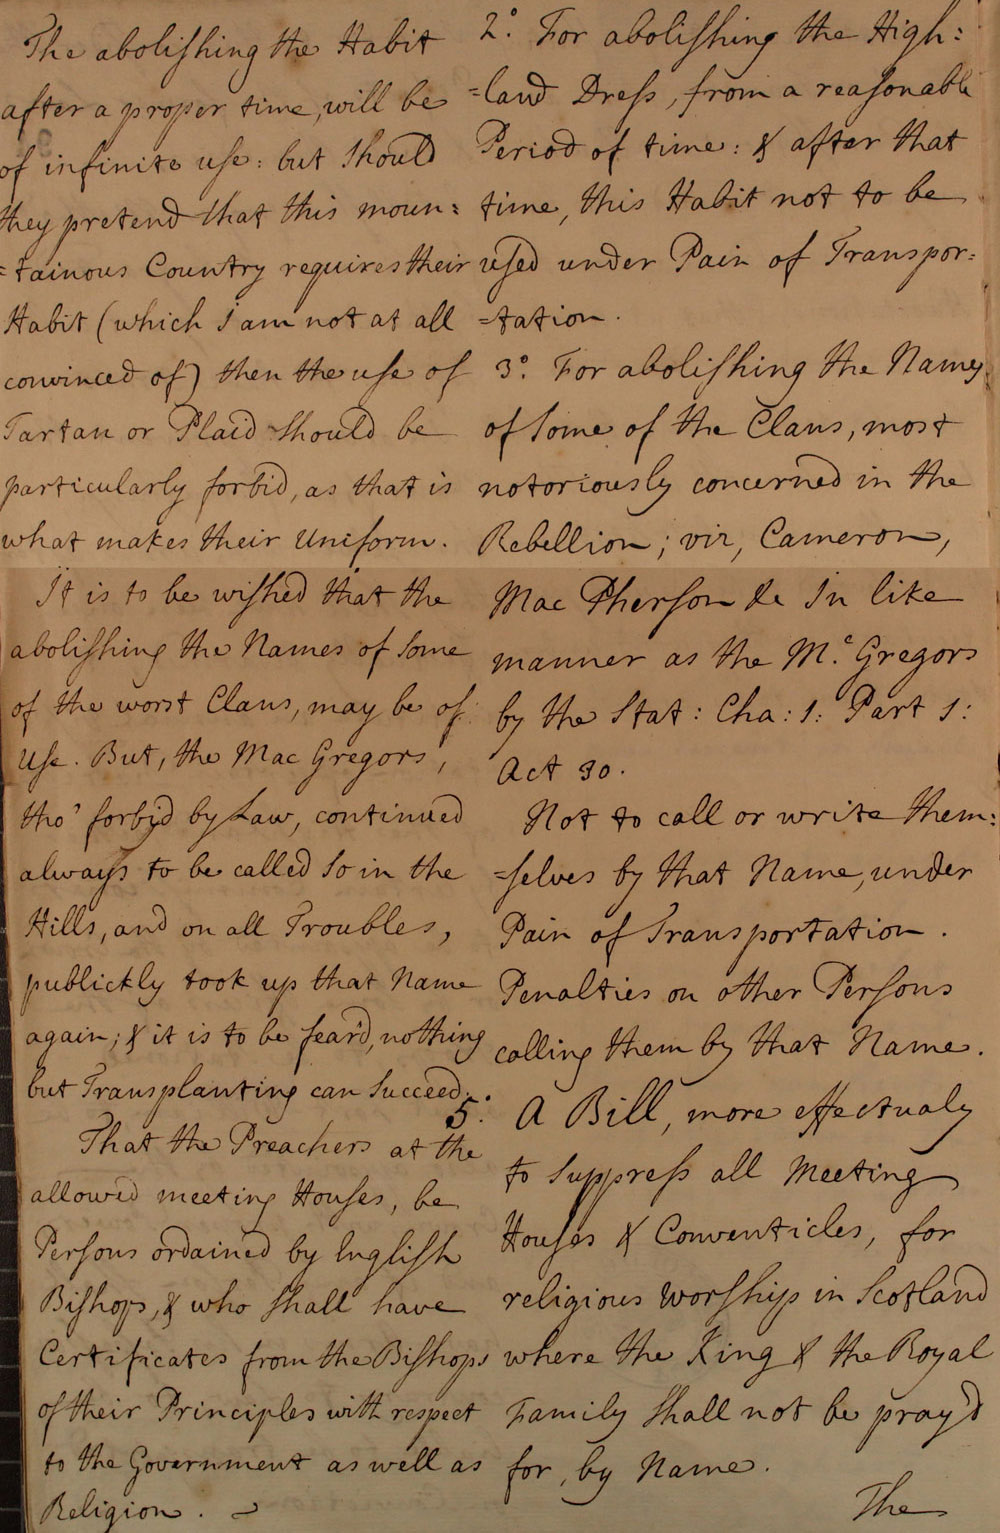 The abolishing the Habit
after a proper time, will be
of infinite use: but should
they pretend that this moun=
=tainous Country requires their
Habit (which I am not at all
convinced of) then the use of
Tartan or Plaid should be
particularly forbid, as that is
what makes their Uniform.
It is to be wished that the
abolishing the Names of some
of the worst Clans, may be of
Use. But, the Mac Gregors,
tho' forbid by Law, continued
always to be called so in the
Hills, and on all Troubles,
publickly took up that Name
again; & it is to be fear'd, nothing
but Transplanting can Succeed.
That the Preachers at the
allowed meeting Houses, be
Persons ordained by English
Bishops, & who shall have
Certificates from the Bishops
of their Principles with respect
to the Government as well as
Religion.
2.° For abolishing the High=
=land Dress, from a reasonable
Period of time: & after that
time, this Habit not to be
used under Pain of Transpor=
=tation.
3.° For abolishing the Names
of some of the Clans, most
notoriously concerned in the
Rebellion; viz, Cameron,
Mac Pherson &c In like
manner as the M.c Gregors
by the Stat: Cha: 1: Part 1:
Act 30.
Not to call or write them=
=selves by that Name, under
Pain of Transportation.
Penalties on other Persons
calling them by that Name.
5.° A Bill, more effectualy
to suppress all Meeting
Houses & Conventicles, for
religious worship in Scotland
where the King & the Royal
Family shall not be pray'd
for, by Name.
The